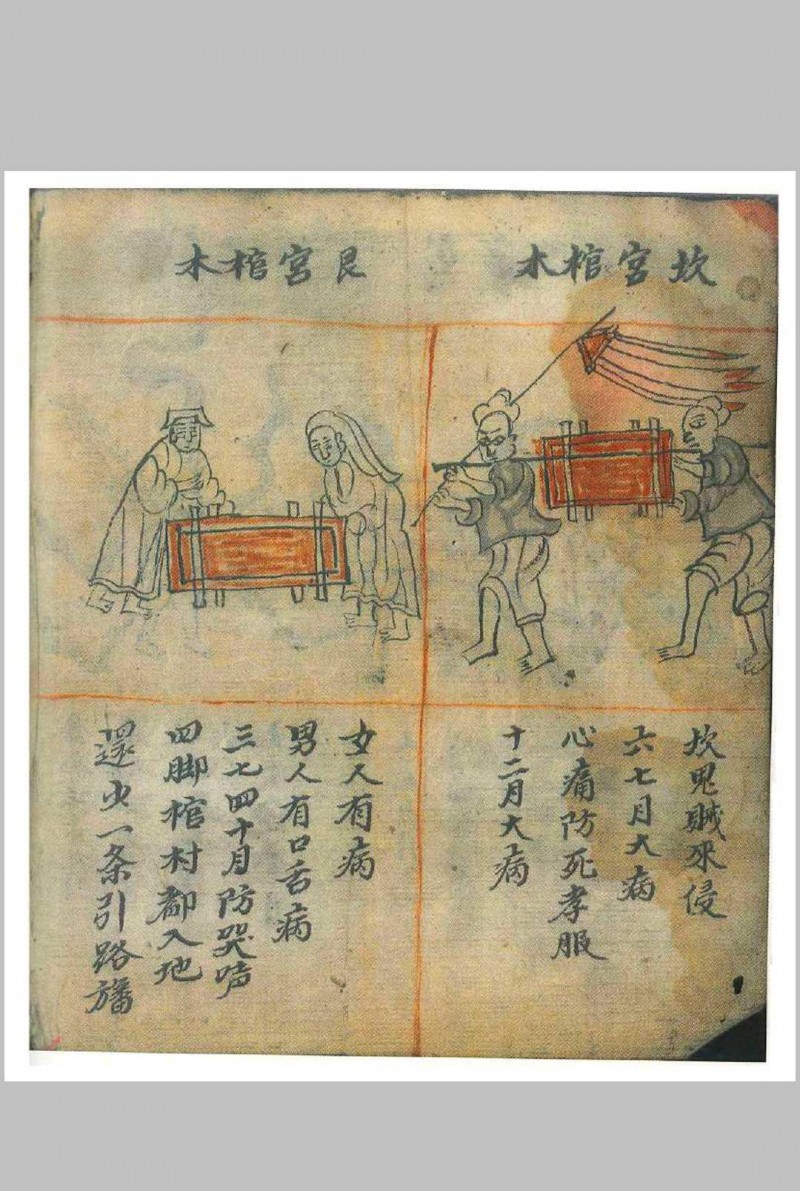 坎宮棺木
坎鬼賊來侵
六七月大病
心痛防死孝服
十二月大病
艮宮棺木
女人有病
男人有口舌病
三七四十月防哭声
四脚棺村都入地
還少一条引路旛